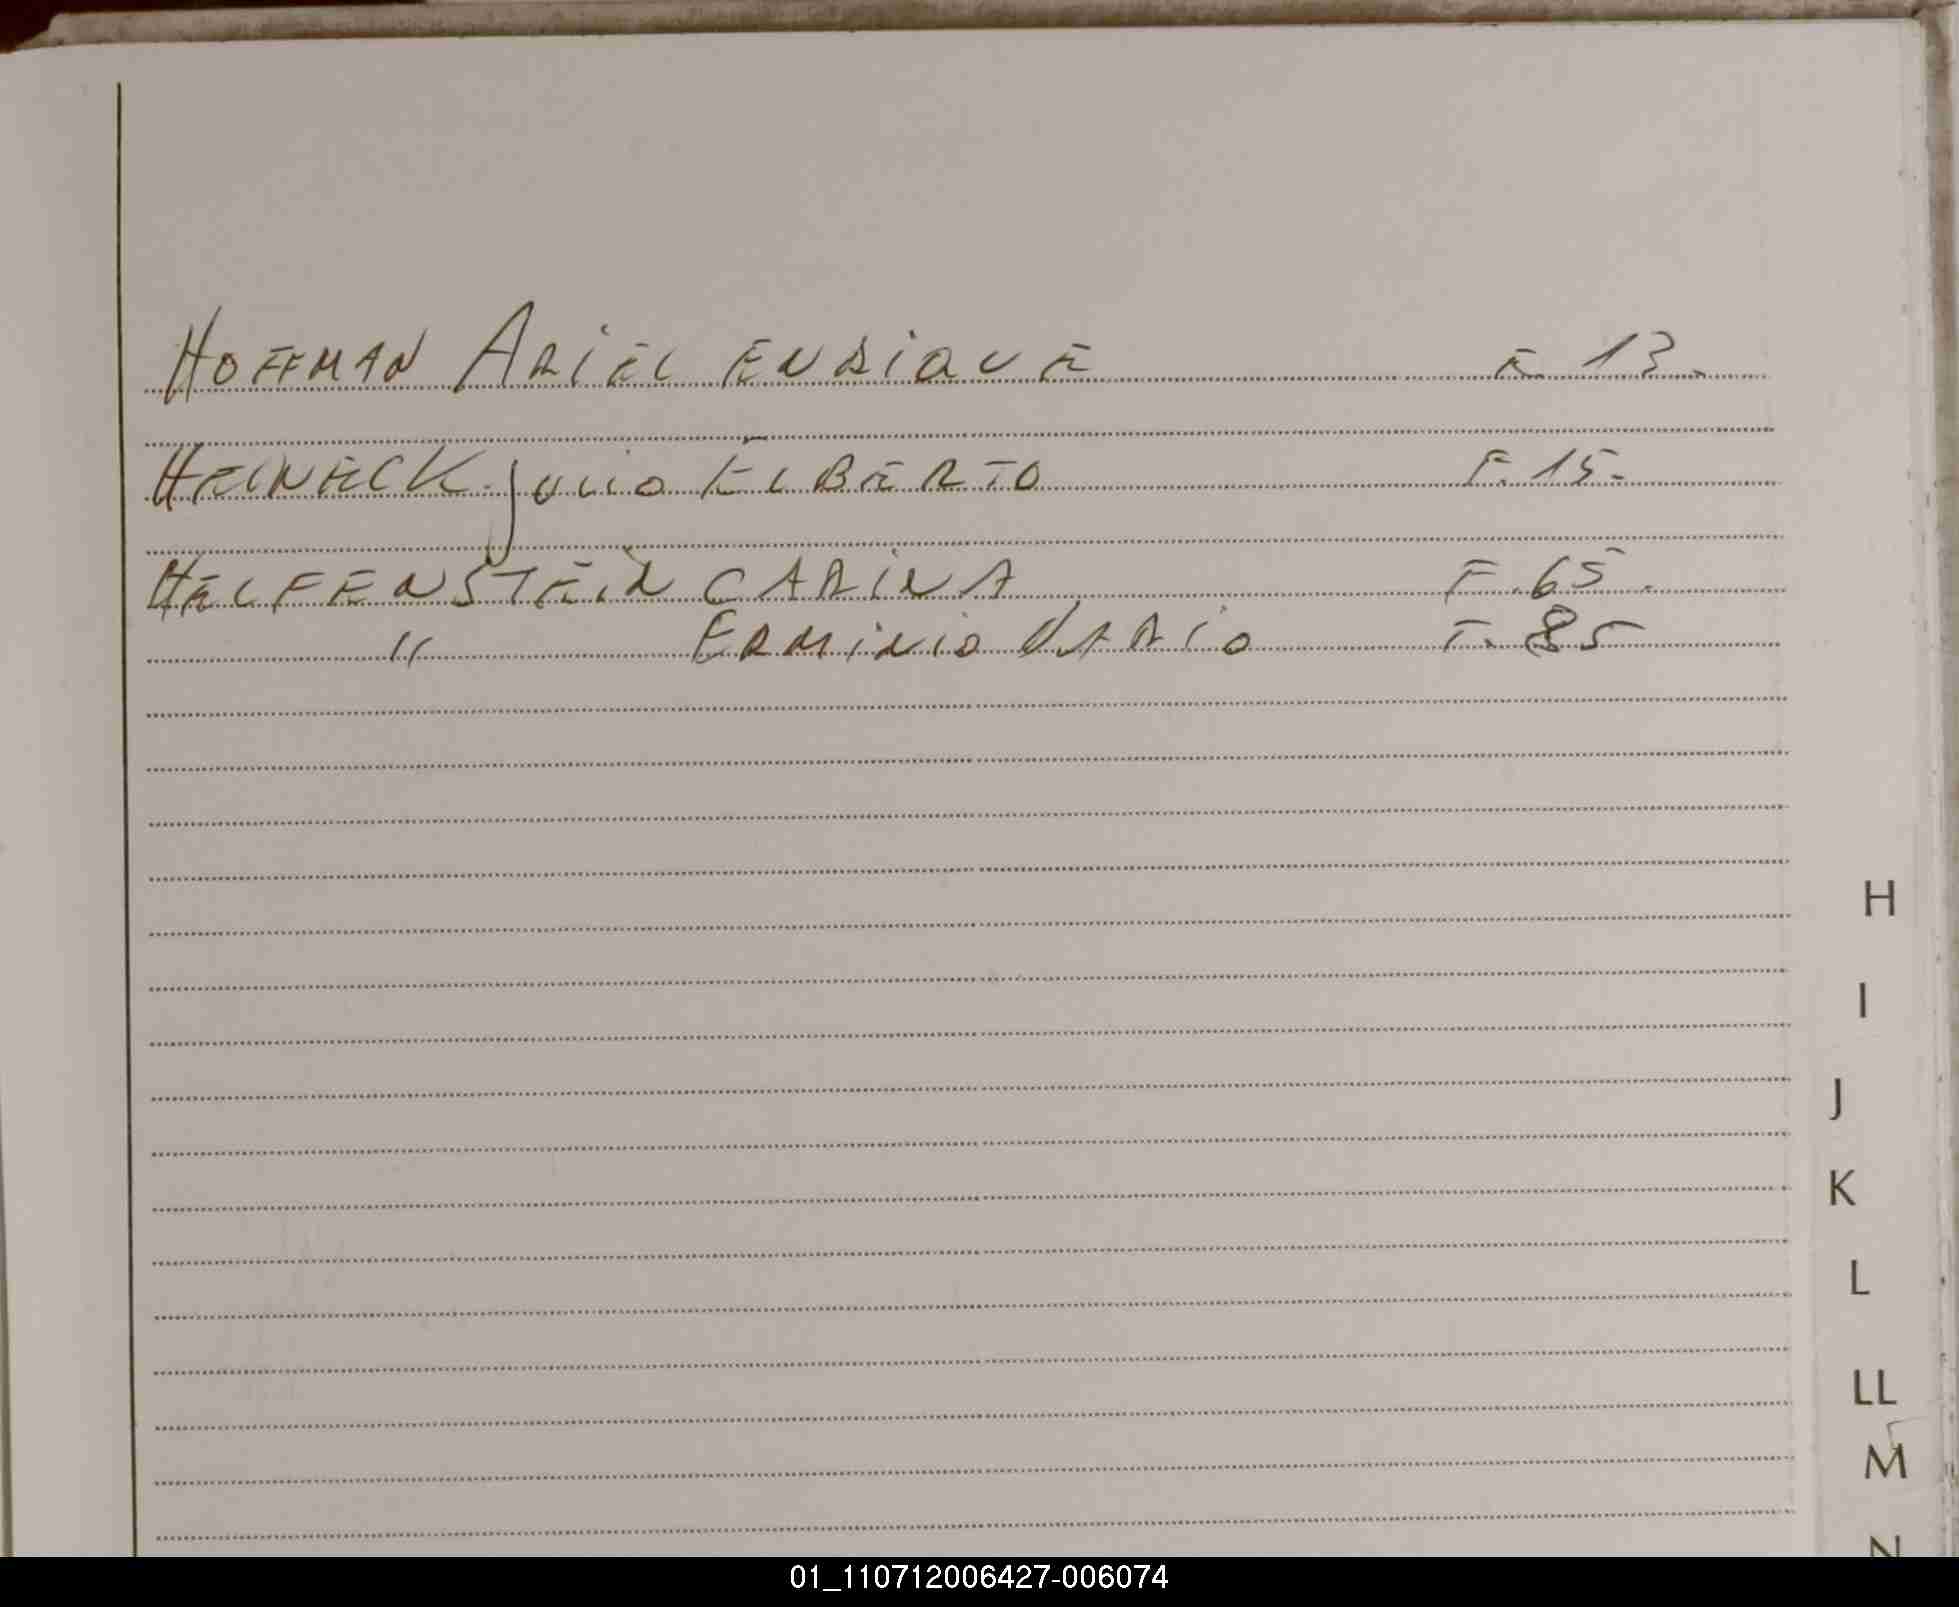 HOFFMAN ARIEL ENRIQUE F. 13.
HEINECK JULIO ELBERTO F. 15.
HELFENSTEIN CARINA F. 65.
" ERMINIO DARIO F. 85
H
I
J
K
L
LL
M
N
01_110712006427-006074